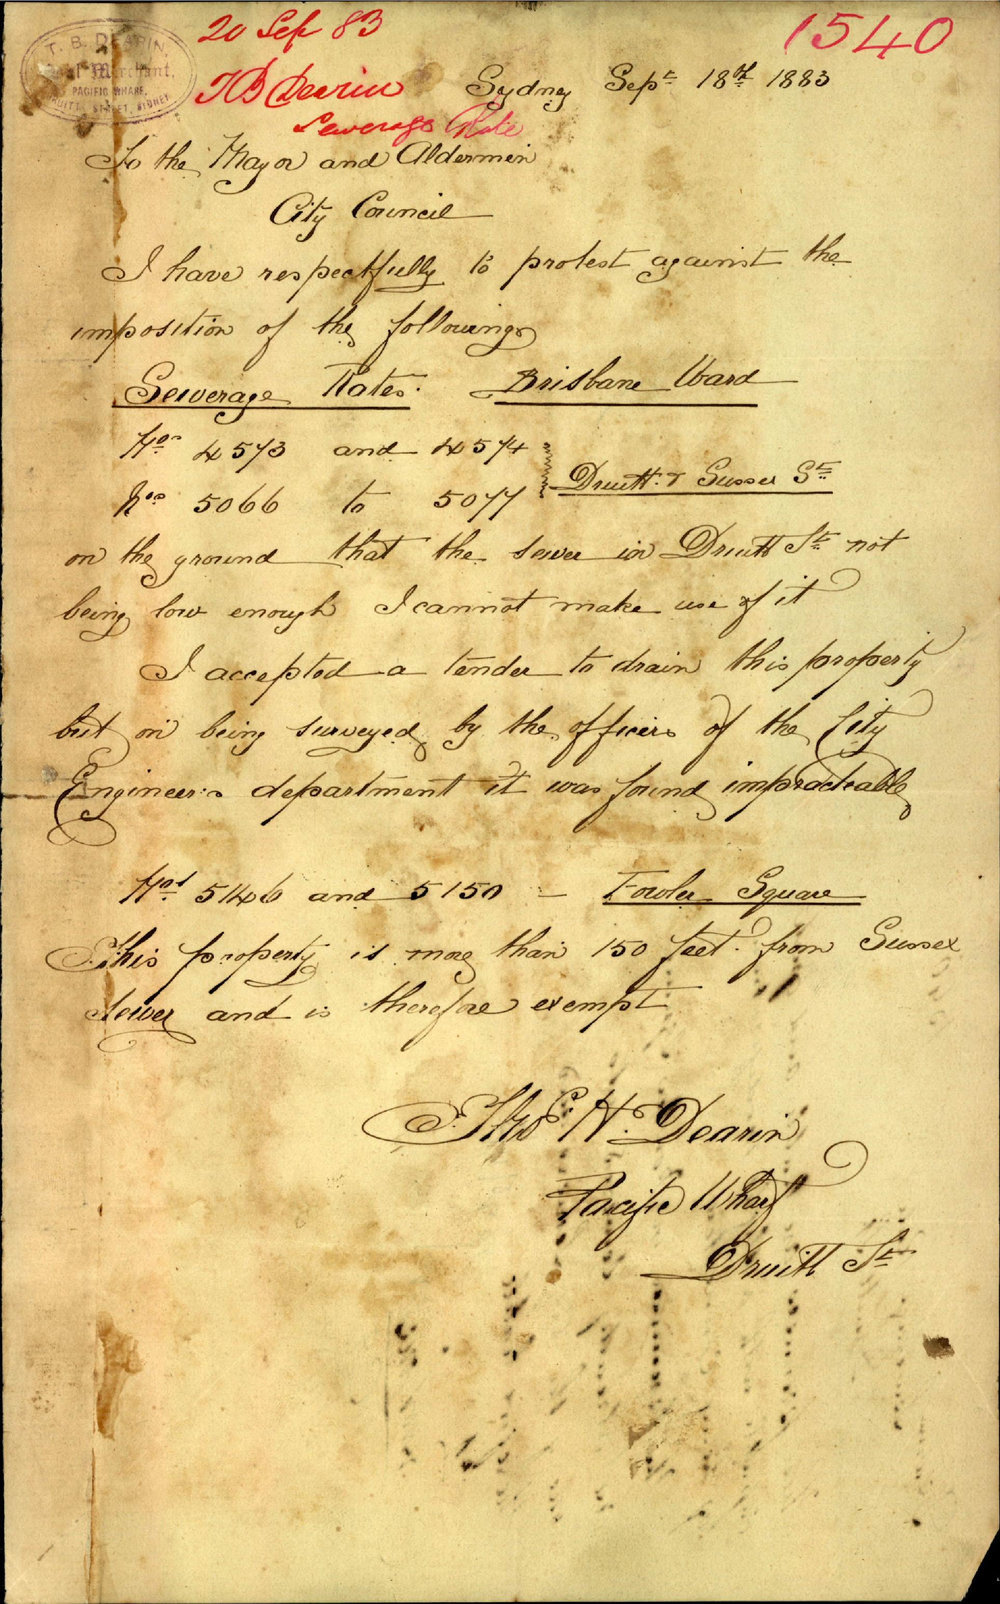 20 Sep 83
1540
T. B. DEARIN,
Merchant,
PACIFIC WHARF,
STREET, SYDNEY
TB Dearin
Sewerage Rate
Sydney Sept 18th 1883
To the Mayor and Aldermen
City Council
I have respectfully to protest against the
imposition of the following
Sewerage Rates. Brisbane Ward
Nos 4573 and 4574
Druitt & Sussex St
Nos 5066 to 5077
on the ground that the sewer in Druitt St not
being low enough I cannot make use of it
I accepted a tender to drain this property
but on being surveyed by the officers of the City
Engineer's department it was found impracticable
Nos 5146 and 5150 - Fowler Square
This property is more than 150 feet from Sussex
Sewer and is therefore exempt
Dearin
Pacific Wharf
Druitt St